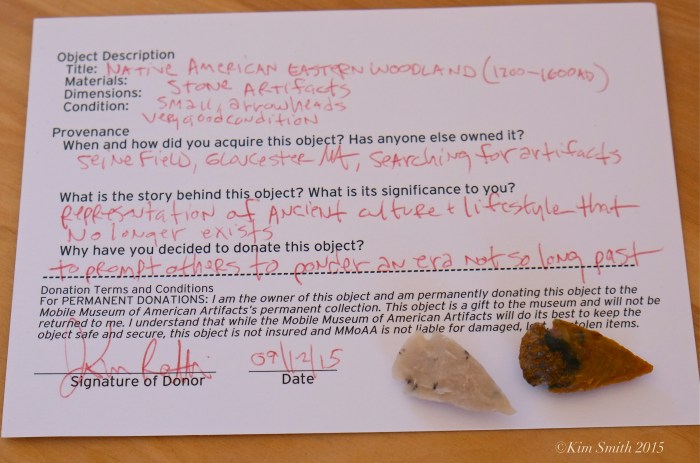 Object Description
Title: NATIVE AMERICAN EASTERN WOODLAND (1200-1600AD)
Materials: STONE ARTIFACTS
Dimensions: Small, arrowheads
Condition: very good condition
Provenance
When and how did you acquire this object? Has anyone else owned it?
Seine Field, Gloucester MA, Searching for artifacts
What is the story behind this object? What is its significance to you?
Representation of Ancient culture + lifestyle that
No longer exists
Why have you decided to donate this object?
to prompt others to ponder an era not so long past
Donation Terms and Conditions
For PERMANENT DONATIONS: I am the owner of this object and am permanently donating this object to the
Mobile Museum of American Artifacts's permanent collection. This object is a gift to the museum and will not be
returned to me. I understand that while the Mobile Museum of American Artifacts will do its best to keep the
object safe and secure, this object is not insured and MMoAA is not liable for damaged, items.
09/12/15
Signature of Donor Date
©Kim Smith 2015